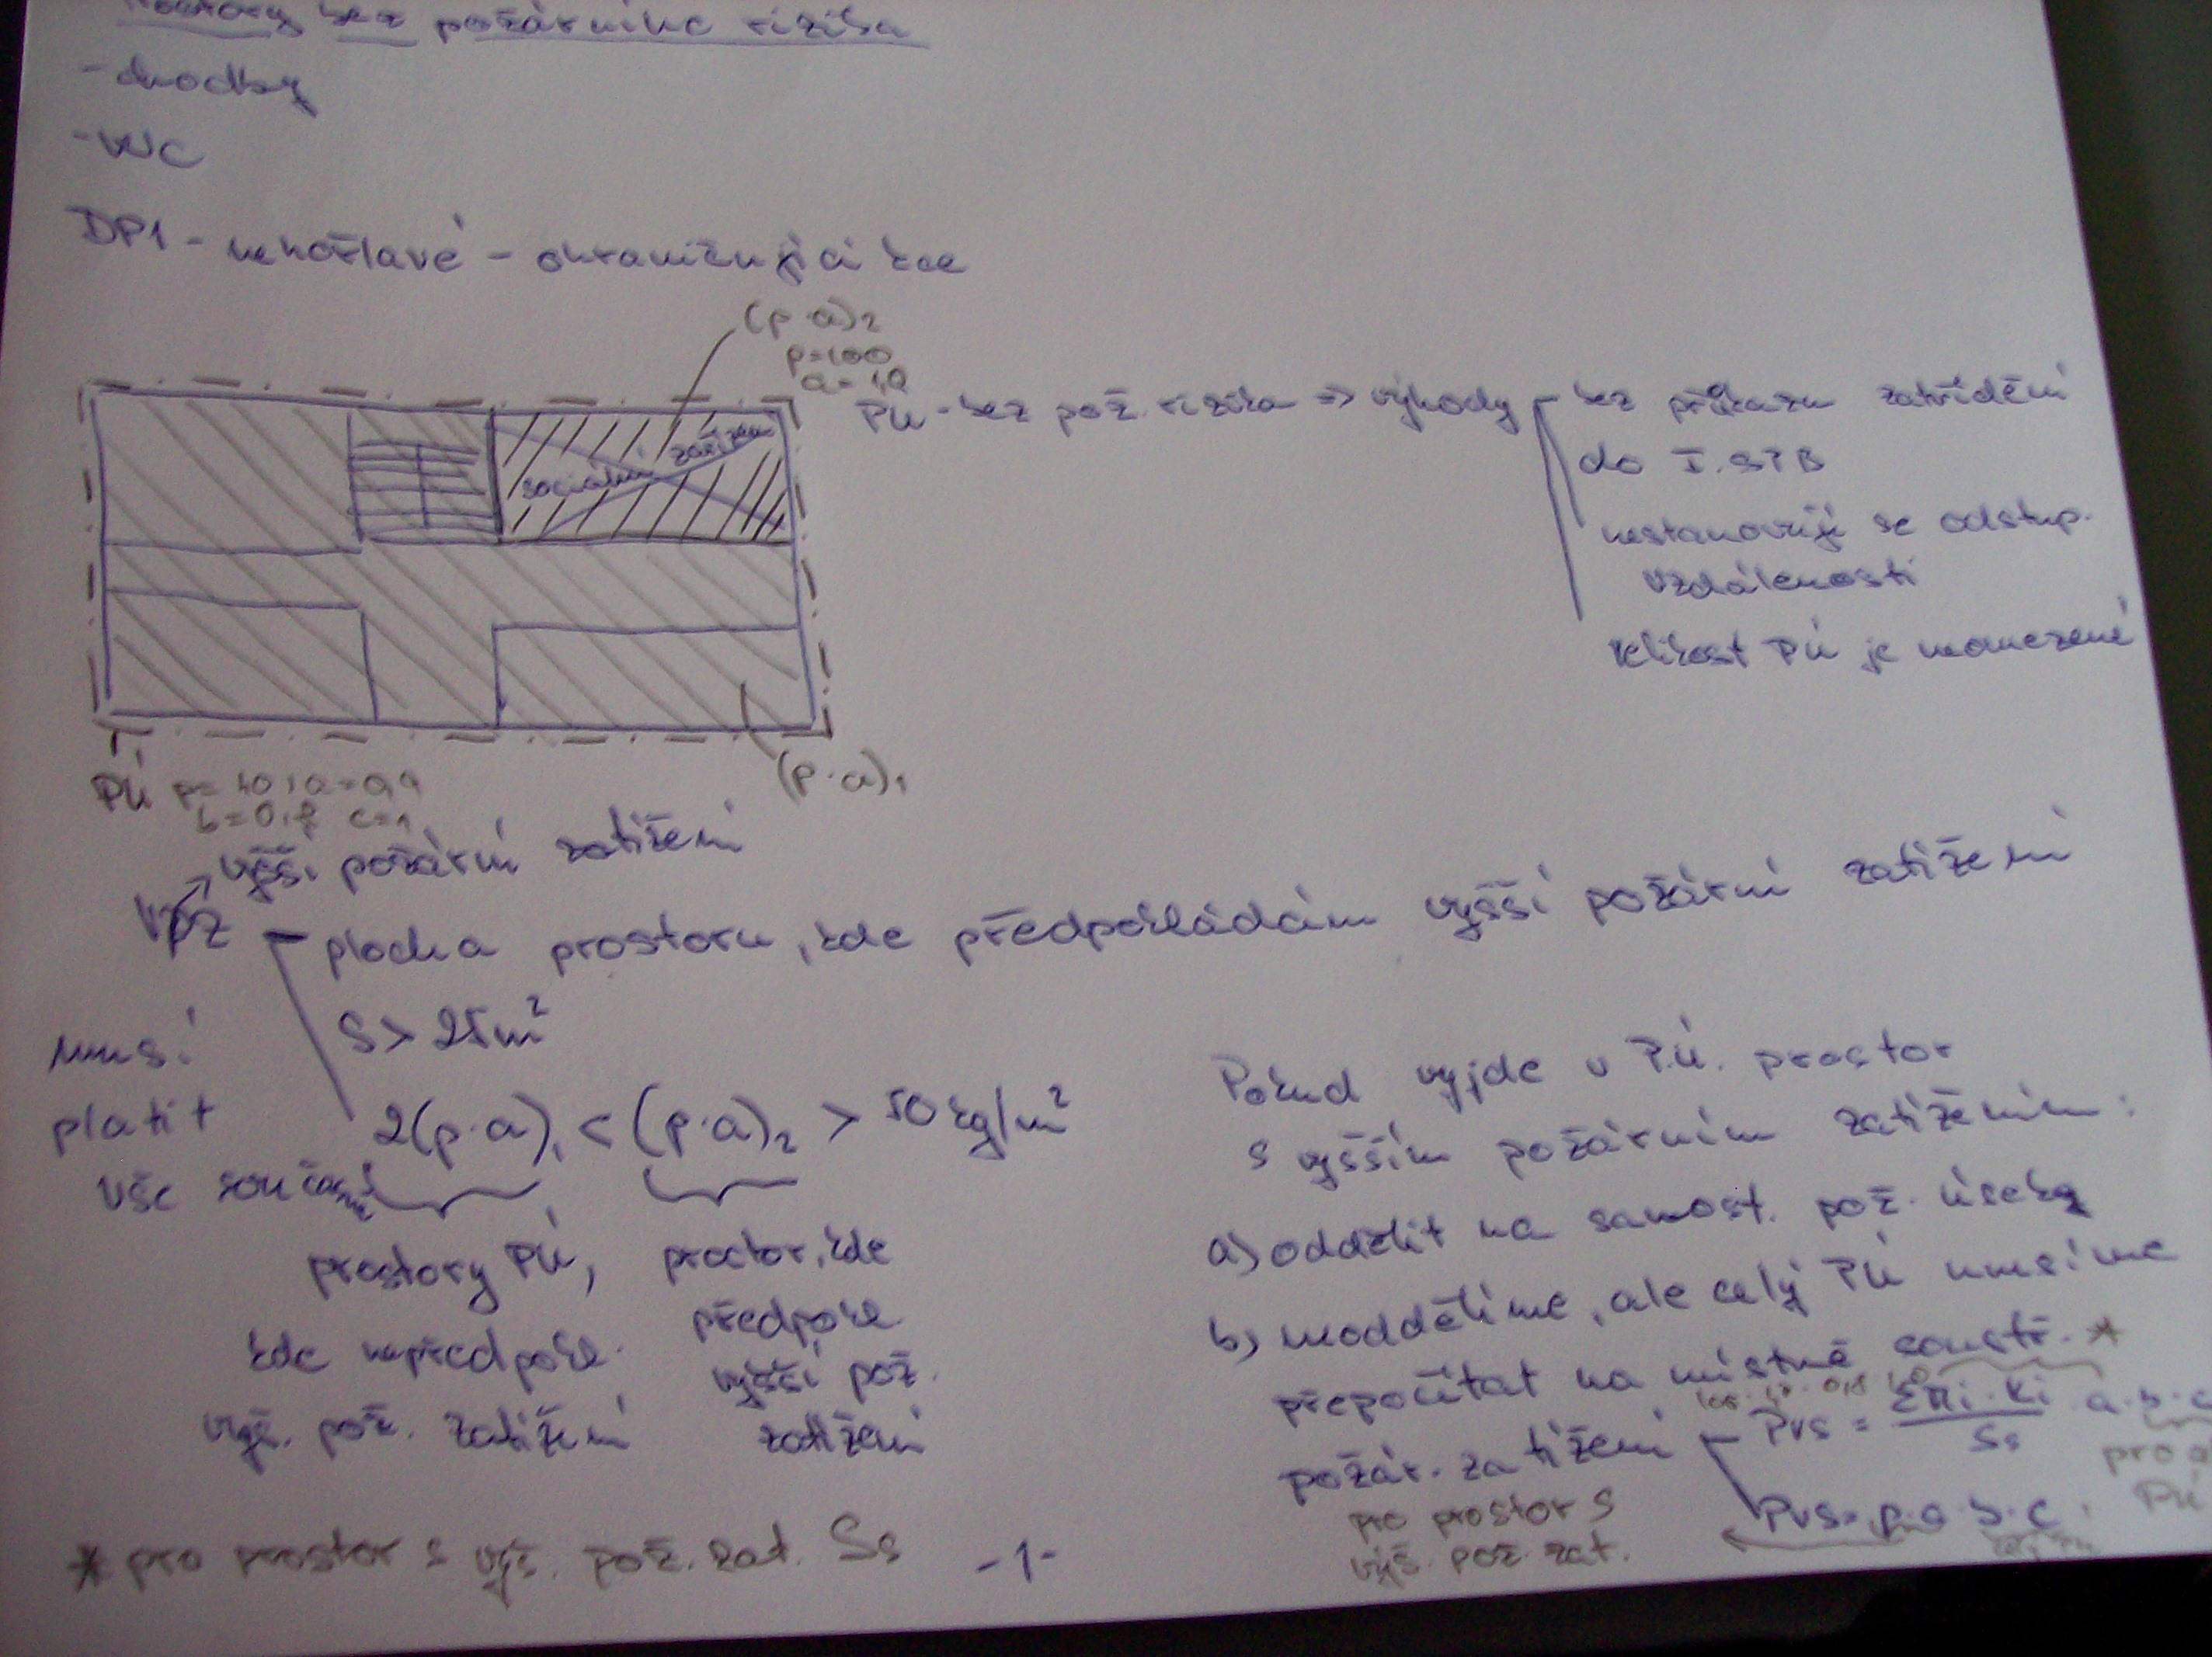 bez požárního rizika
- chodby
- WC
DP1 - nehořlavé - ohraničující kce
(p·a)₂
p=100
sociální zařízení
PÚ - bez pož. rizika => výhody
bez průkazu zatřídění
do I. SPB
nestanovují se odstup.
vzdálenosti
Velikost PÚ je neomezené
(p·a)₁
PÚ p= 40, a=0,9
c=1
vyšší požární zatížení
VPZ
plocha prostoru, kde předpokládám vyšší požární zatížení
S > 25 m²
musí
platit
vše současně
2(p·a)₁ < (p·a)₂ > 50 kg/m²
prostory PÚ,
kde nepředpokl.
vyš. pož. zatížení
prostor, kde
předpokl
vyšší pož.
zatížení
Pokud vyjde v P.Ú. prostor
s vyšším požárním zatížením:
a) oddělit na samost. pož. úseky
b) neoddělíme, ale celý PÚ musíme
přepočítat na místně soustř. *
požár. zatížení
Pvs = ΣMi·Ki / Ss a·b·c
pro prostor s
vyš. pož. zat.
Pvs = p·a·b·c
PÚ
* pro prostor s vyš. pož. zat. Ss
-1-